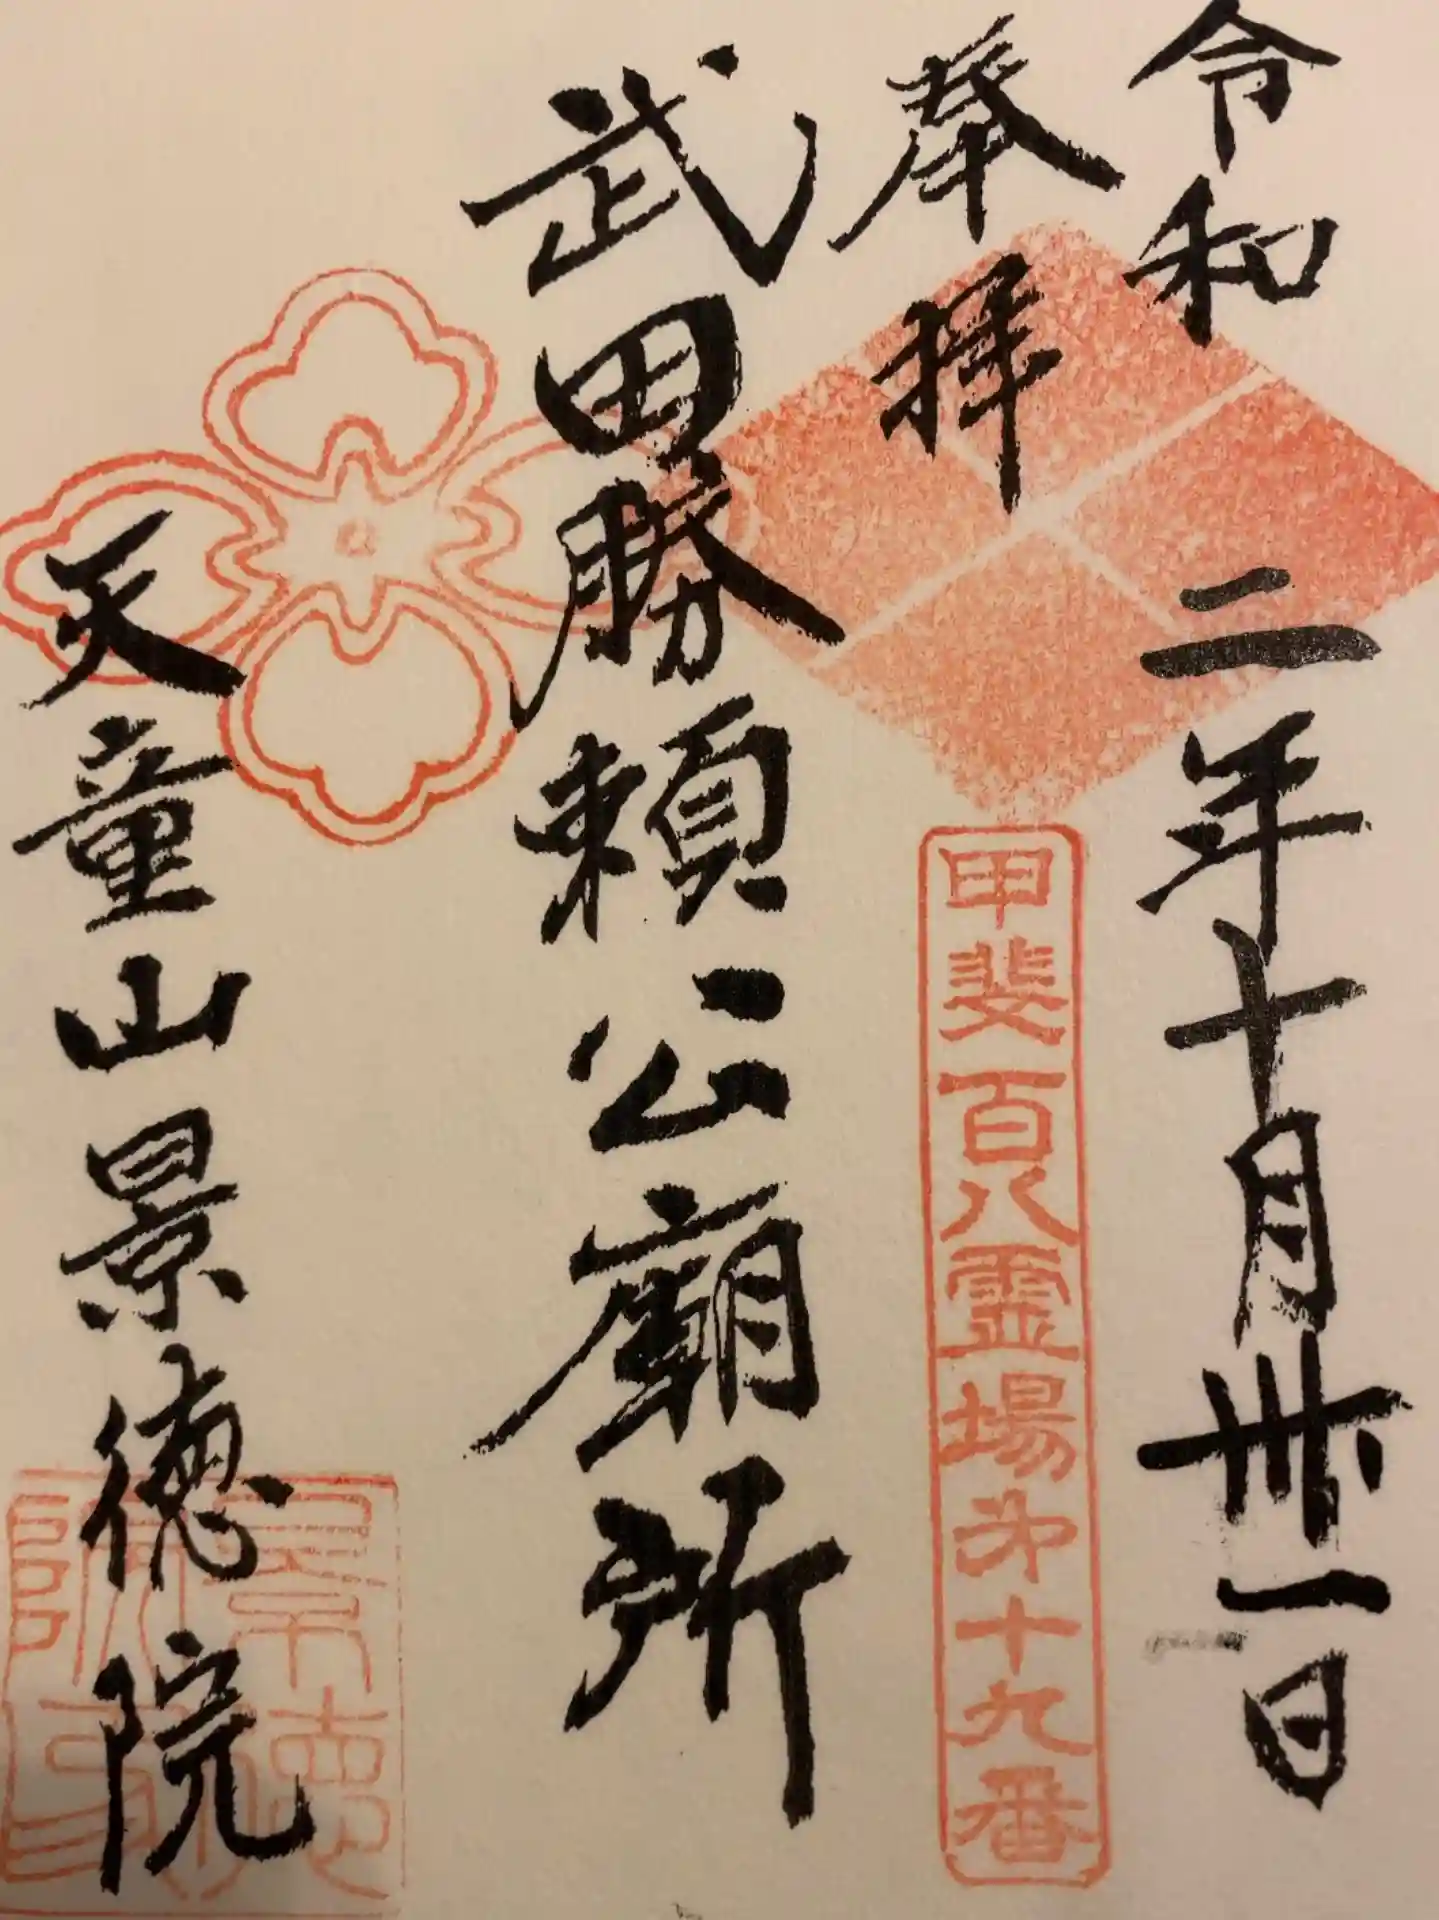 令和二年十月卅一日
奉拝
甲斐百八霊場第十九番
武田勝頼公廟所
天童山景徳院
景徳院印